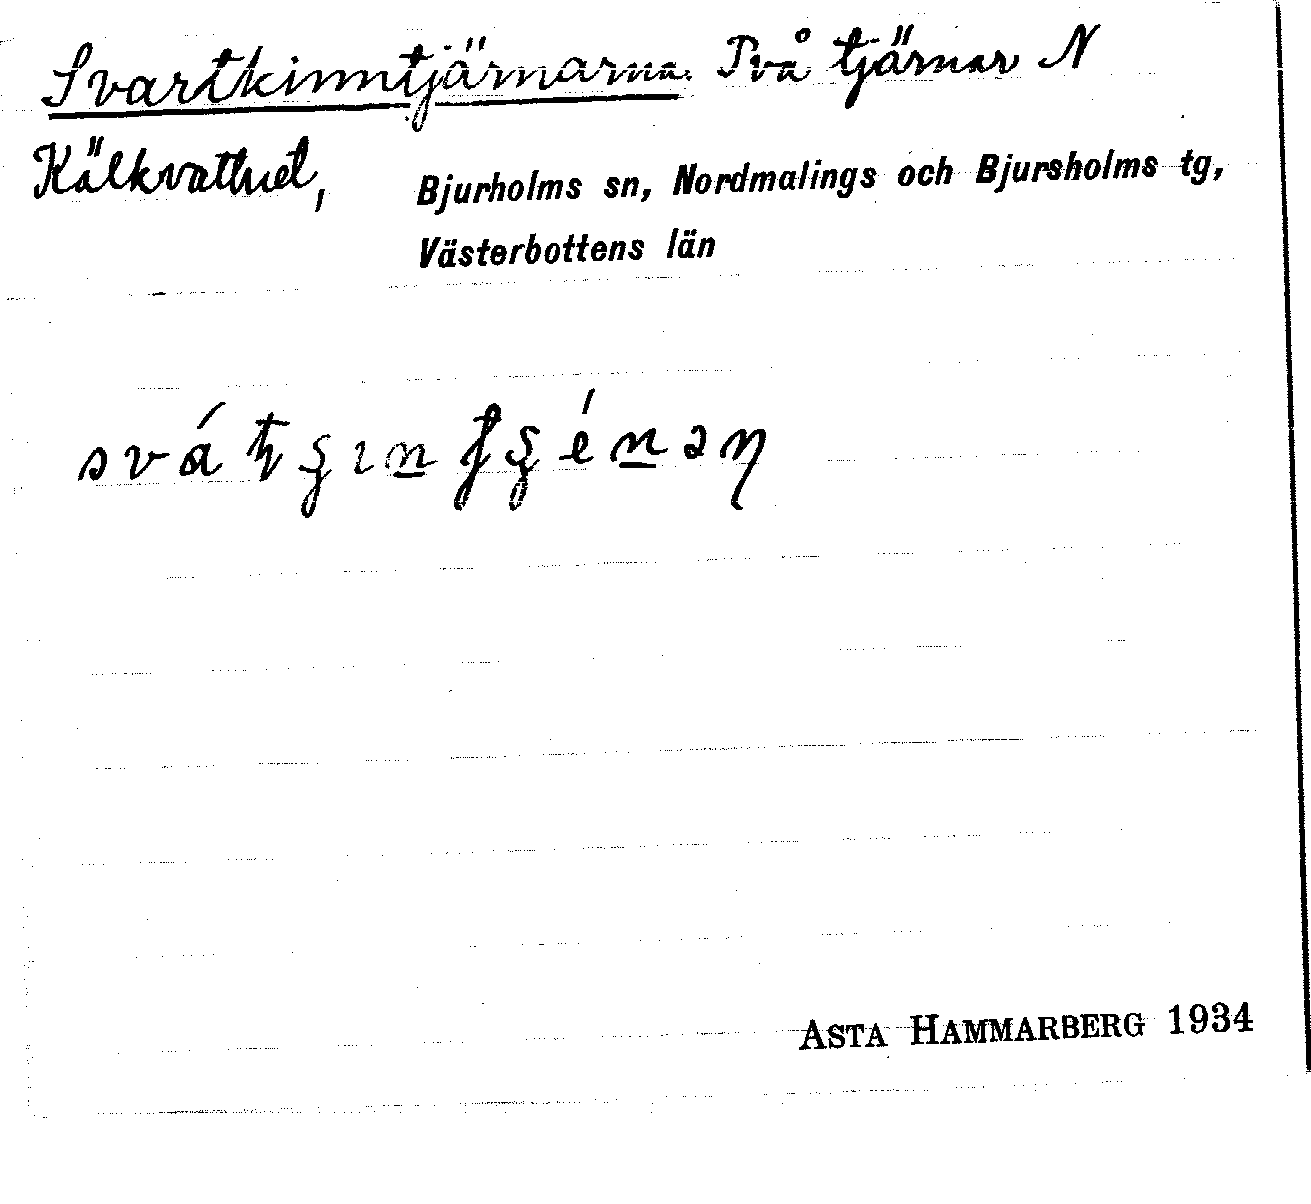 Svartkinntjärnarna. Två tjärnar N
Kälkvattnet, Bjurholms sn, Nordmalings och Bjursholms tg,
Västerbottens län
ASTA HAMMARBERG 1934